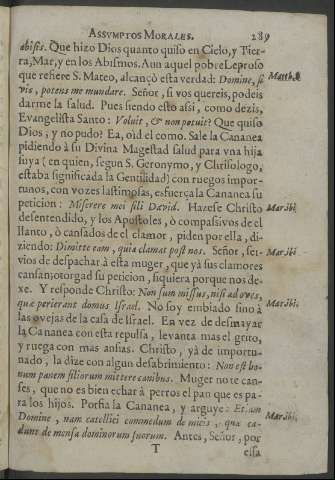 ASSVMPTOS MORALES. 289
abissis. Que hizo Dios quanto quiso en Cielo, y Tier-
ra, Mar, y en los Abismos. Aun aquel pobre Leproso
que refiere S. Mateo, alcançò esta verdad: Domine, si Matth. 8
vis, potens me mundare. Señor, si vos quereis, podeis
darme la salud. Pues siendo esto assi, como dezis,
Evangelista Santo: Voluit, & non potuit? Que quiso
Dios, y no pudo? Ea, oìd el como. Sale la Cananea
pidiendo à su Divina Magestad salud para vna hija
suya (en quien, segun S. Geronymo, y Chrisologo,
estaba significada la Gentilidad) con ruegos impor-
tunos, con vozes lastimosas, esfuerça la Cananea su
peticion: Miserere mei fili David. Hazese Christo Mar. ibi.
desentendido, y los Apostoles, ò compassivos de el
llanto, ò cansados de el clamor, piden por ella, di-
ziendo: Dimitte eam, quia clamat post nos. Señor, ser- Mar. ibi
vios de despachar à esta muger, que yà sus clamores
cansan; otorgad su peticion, siquiera porque nos de-
xe. Y responde Christo: Non sum missus, nisi ad oves,
que perierant domus Israel. No soy embiado sino à Mar. ibi.
las ovejas de la casa de Israel. En vez de desmayar
la Cananea con esta repulsa, levanta mas el grito,
y ruega con mas ansias. Christo, yà de importu-
nado, la dize con algun desabrimiento: Non est bo-
num panem filiorum mittere canibus. Muger no te can-
ses, que no es bien echar à perros el pan que es pa-
ra los hijos. Porfia la Cananea, y arguye: Etiam
Domine, nam catellici commedunt de micis, quæ ca- Mar. ibi.
dunt de mensa dominorum suorum. Antes, Señor, por
T essa